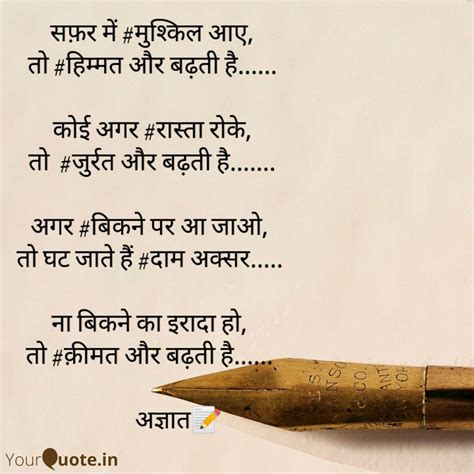 सफ़र में #मुश्किल आए,
तो #हिम्मत और बढ़ती है......
कोई अगर #रास्ता रोके,
तो #जुर्रत और बढ़ती है.......
अगर #बिकने पर आ जाओ,
तो घट जाते हैं #दाम अक्सर.....
ना बिकने का इरादा हो,
तो #क़ीमत और बढ़ती है......
अज्ञात📝
YourQuote.in